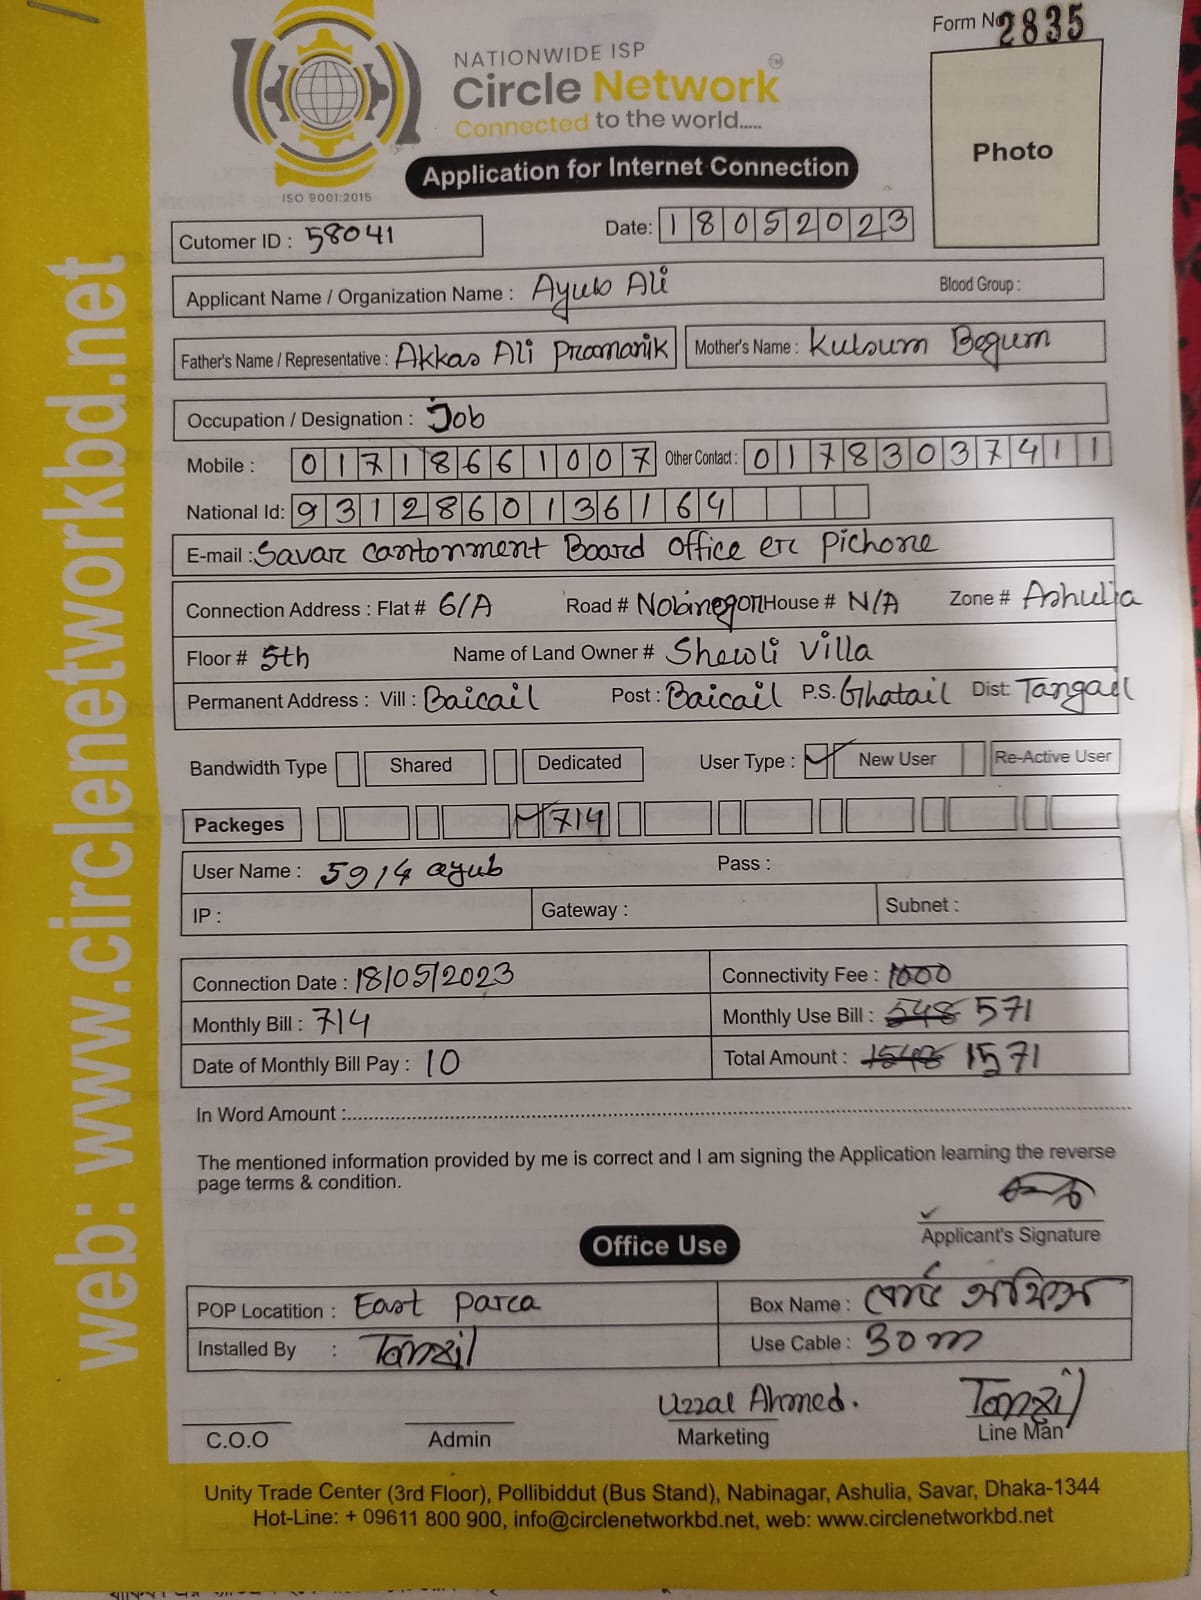 Form No 2835
NATIONWIDE ISP
Circle Network TM
Connected to the world.....
Photo
Application for Internet Connection
ISO 9001:2015
Cutomer ID : 58041 Date: 18052023
Applicant Name / Organization Name : Ayub Ali Blood Group :
Father's Name / Representative : Akkas Ali Pramanik Mother's Name : Kulsum Begum
Occupation / Designation : Job
Mobile : 01718661007 Other Contact : 01783037411
National Id: 9312860136164
E-mail : Savar cantonment Board office er pichone
Connection Address : Flat # 6/A Road # Nobinegor House # N/A Zone # Ashulia
Floor # 5th Name of Land Owner # Shewli villa
Permanent Address : Vill : Baicail Post : Baicail P.S. Ghatail Dist: Tangail
Bandwidth Type Shared Dedicated User Type : New User Re-Active User
Packeges 714
User Name : 5914 ayub Pass :
IP : Gateway : Subnet :
Connection Date : 18/05/2023 Connectivity Fee : 1000
Monthly Bill : 714 Monthly Use Bill : 548 571
Date of Monthly Bill Pay : 10 Total Amount : 1548 1571
In Word Amount :
The mentioned information provided by me is correct and I am signing the Application learning the reverse
page terms & condition.
Applicant's Signature
Office Use
POP Locatition : East para Box Name : বোর্ড অফিস
Installed By : Tanzil Use Cable : 30 m
Uzzal Ahmed. Tanzil
C.O.O Admin Marketing Line Man
Unity Trade Center (3rd Floor), Pollibiddut (Bus Stand), Nabinagar, Ashulia, Savar, Dhaka-1344
Hot-Line: + 09611 800 900, info@circlenetworkbd.net, web: www.circlenetworkbd.net
web: www.circlenetworkbd.net